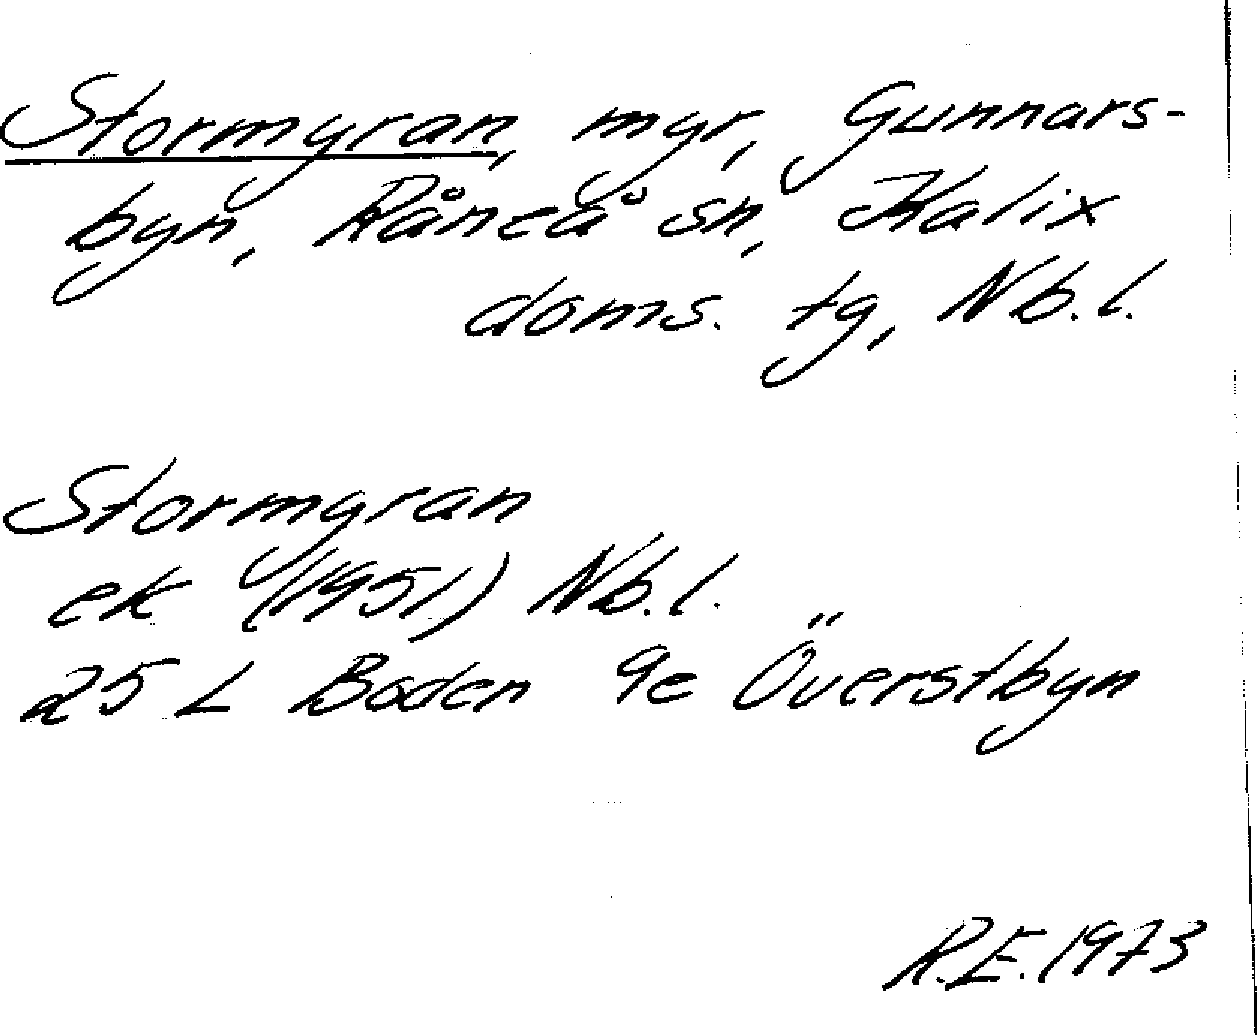 Stormyran, myr, Gunnars-
byn, Råneå sn, Kalix
doms. tg, Nb.l.
Stormyran
ek (1951) Nb.l.
25 L Boden 9e Överstbyn
R.E. 1973